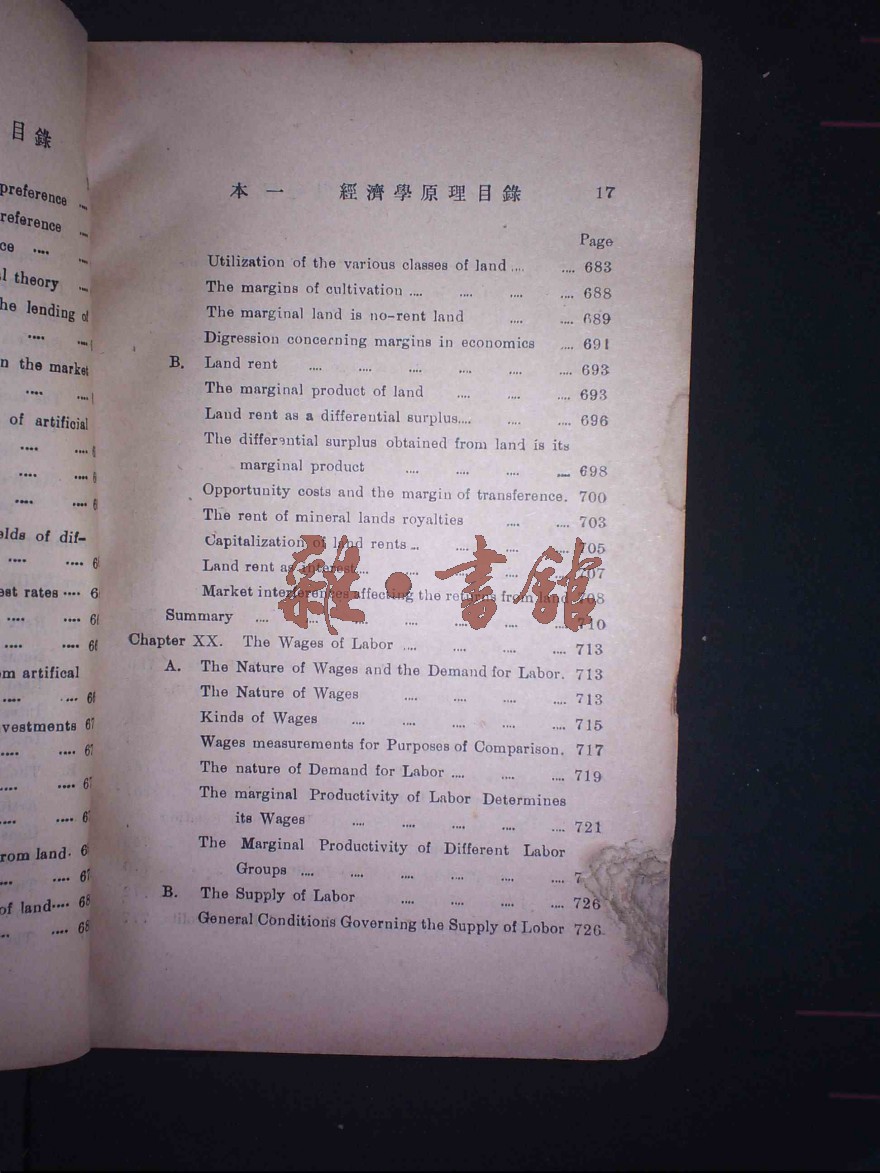 目錄
preference
reference
ce ....
l theory
he lending of
n the market
of artificial
elds of dif-
est rates ....
om artifical
vestments 67
rom land.
of land.... 68
本一 經濟學原理目錄 17
Page
Utilization of the various classes of land .... .... 683
The margins of cultivation .... .... .... .... 688
The marginal land is no-rent land .... .... 689
Digression concerning margins in economics .... 691
B. Land rent .... .... .... .... .... .... 693
The marginal product of land .... .... .... 693
Land rent as a differential surplus.... .... .... 696
The differential surplus obtained from land is its
marginal product .... .... .... .... 698
Opportunity costs and the margin of transference. 700
The rent of mineral lands royalties .... .... 703
Capitalization of land rents .. .... .... .... 705
Land rent as interest... .... .... .... .... 707
Market interferences affecting the returns from land 708
Summary .... .... .... .... .... .... .... 710
Chapter XX. The Wages of Labor .... .... .... .... 713
A. The Nature of Wages and the Demand for Labor. 713
The Nature of Wages .... .... .... .... 713
Kinds of Wages .... .... .... .... .... 715
Wages measurements for Purposes of Comparison. 717
The nature of Demand for Labor .... .... .... 719
The marginal Productivity of Labor Determines
its Wages .... .... .... .... .... 721
The Marginal Productivity of Different Labor
Groups .... .... .... .... .... .... 7
B. The Supply of Labor .... .... .... .... 726
General Conditions Governing the Supply of Lobor 726
雜·書館